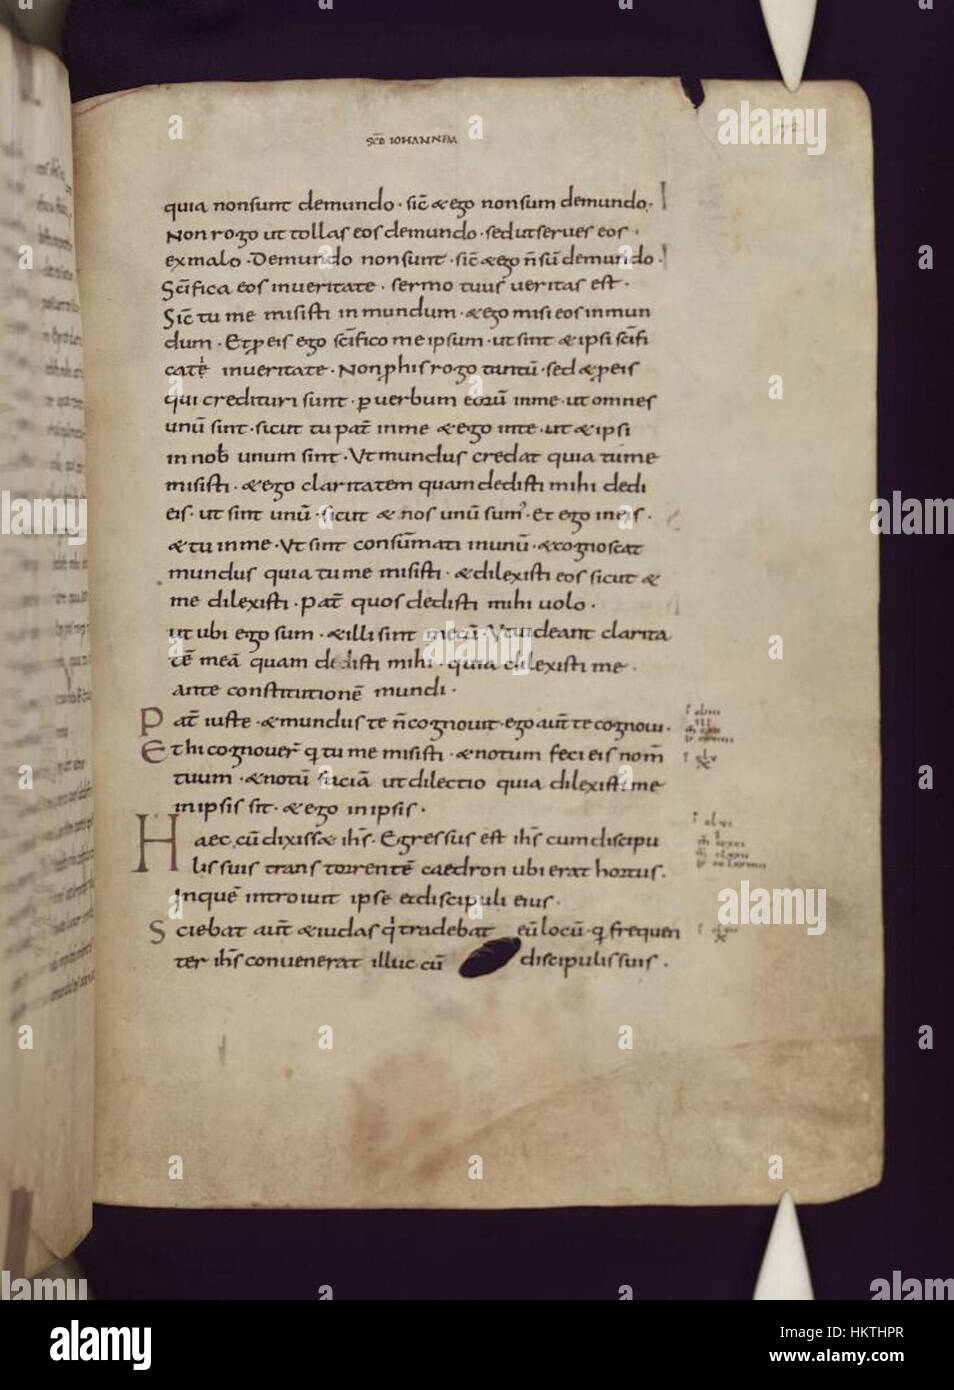 SCD IOHANNEM
172
quia non sunt de mundo · sic̄ & ego non sum de mundo ·
Non rogo ut tollas eos de mundo · sed ut serues eos ·
ex malo · De mundo non sunt · sic̄ & ego n̄ sū de mundo ·
Sc̄ifica eos in ueritate · sermo tuus ueritas est ·
Sic̄ tu me misisti in mundum · & ego misi eos in mun
dum · Et ꝓ eis ego sc̄ifico me ipsum · ut sint & ipsi sc̄ifi
cati in ueritate · Non ꝓ his rogo tantū · sed & ꝓ eis
qui credituri sunt · ꝑ uerbum eorū in me · ut omnes
unū sint · sicut tu pat̄ in me & ego in te · ut & ipsi
in nob̄ unum sint · Vt mundus credat quia tu me
misisti · & ego claritatem quam dedisti mihi dedi
eis · ut sint unū · sicut & nos unū sum᾽ · Et ego in eis ·
& tu in me · Vt sint consūmati in unū · & cognoscat
mundus quia tu me misisti · & dilexisti eos sicut &
me dilexisti · Pat̄ quos dedisti mihi uolo ·
ut ubi ego sum · & illi sint mecū · Vt uideant clarita
tē meā quam dedisti mihi · quia dilexisti me ·
ante constitutionē mundi ·
Pat̄ iuste · & mundus te n̄ cognouit · ego aut̄ te cognoui ·
Et hi cognouer̄ q tu me misisti · & notum feci eis nom̄
tuum · & notū faciā ut dilectio quia dilexisti me
in ipsis sit · & ego in ipsis ·
Haec cū dixiss& ih̄s · Egressus est ih̄s cum discipu
lis suis trans torrentē caedron ubi erat hortus ·
In quē introiuit ipse et discipuli eius ·
Sciebat aut̄ & iudas qi tradebat eū locū · q frequen
ter ih̄s conuenerat illuc cū discipulis suis ·
alamy
Image ID: HKTHPR
www.alamy.com